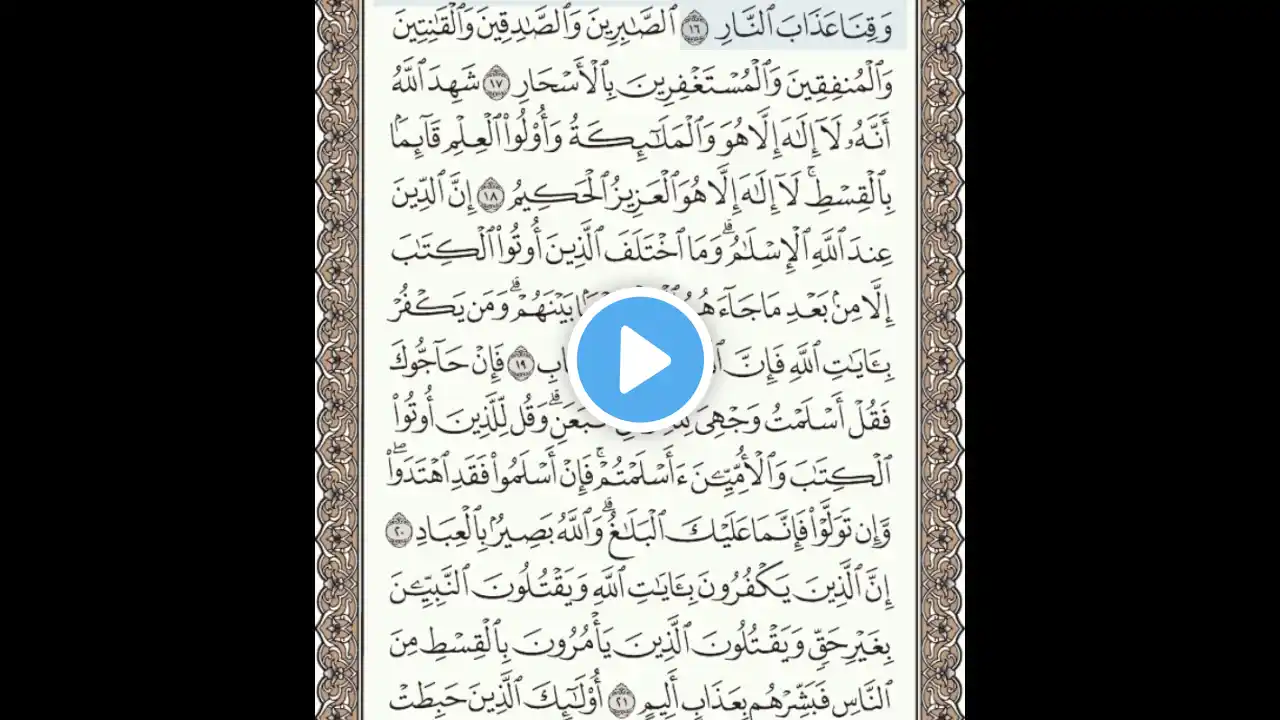 وَقِنَا عَذَابَ ٱلنَّارِ ١٦ ٱلصَّٰبِرِينَ وَٱلصَّٰدِقِينَ وَٱلْقَٰنِتِينَ
وَٱلْمُنفِقِينَ وَٱلْمُسْتَغْفِرِينَ بِٱلْأَسْحَارِ ١٧ شَهِدَ ٱللَّهُ
أَنَّهُۥ لَآ إِلَٰهَ إِلَّا هُوَ وَٱلْمَلَٰٓئِكَةُ وَأُو۟لُوا۟ ٱلْعِلْمِ قَآئِمًۢا
بِٱلْقِسْطِ ۚ لَآ إِلَٰهَ إِلَّا هُوَ ٱلْعَزِيزُ ٱلْحَكِيمُ ١٨ إِنَّ ٱلدِّينَ
عِندَ ٱللَّهِ ٱلْإِسْلَٰمُ ۗ وَمَا ٱخْتَلَفَ ٱلَّذِينَ أُوتُوا۟ ٱلْكِتَٰبَ
إِلَّا مِنۢ بَعْدِ مَا جَآءَهُمُ بَيْنَهُمْ ۗ وَمَن يَكْفُرْ
بِـَٔايَٰتِ ٱللَّهِ فَإِنَّ ١٩ فَإِنْ حَآجُّوكَ
فَقُلْ أَسْلَمْتُ وَجْهِىَ ۗ وَقُل لِّلَّذِينَ أُوتُوا۟
ٱلْكِتَٰبَ وَٱلْأُمِّيِّـۧنَ ءَأَسْلَمْتُمْ ۚ فَإِنْ أَسْلَمُوا۟ فَقَدِ ٱهْتَدَوا۟ ۖ
وَّإِن تَوَلَّوْا۟ فَإِنَّمَا عَلَيْكَ ٱلْبَلَٰغُ ۗ وَٱللَّهُ بَصِيرٌۢ بِٱلْعِبَادِ ٢٠
إِنَّ ٱلَّذِينَ يَكْفُرُونَ بِـَٔايَٰتِ ٱللَّهِ وَيَقْتُلُونَ ٱلنَّبِيِّـۧنَ
بِغَيْرِ حَقٍّ وَيَقْتُلُونَ ٱلَّذِينَ يَأْمُرُونَ بِٱلْقِسْطِ مِنَ
ٱلنَّاسِ فَبَشِّرْهُم بِعَذَابٍ أَلِيمٍ ٢١ أُو۟لَٰٓئِكَ ٱلَّذِينَ حَبِطَتْ